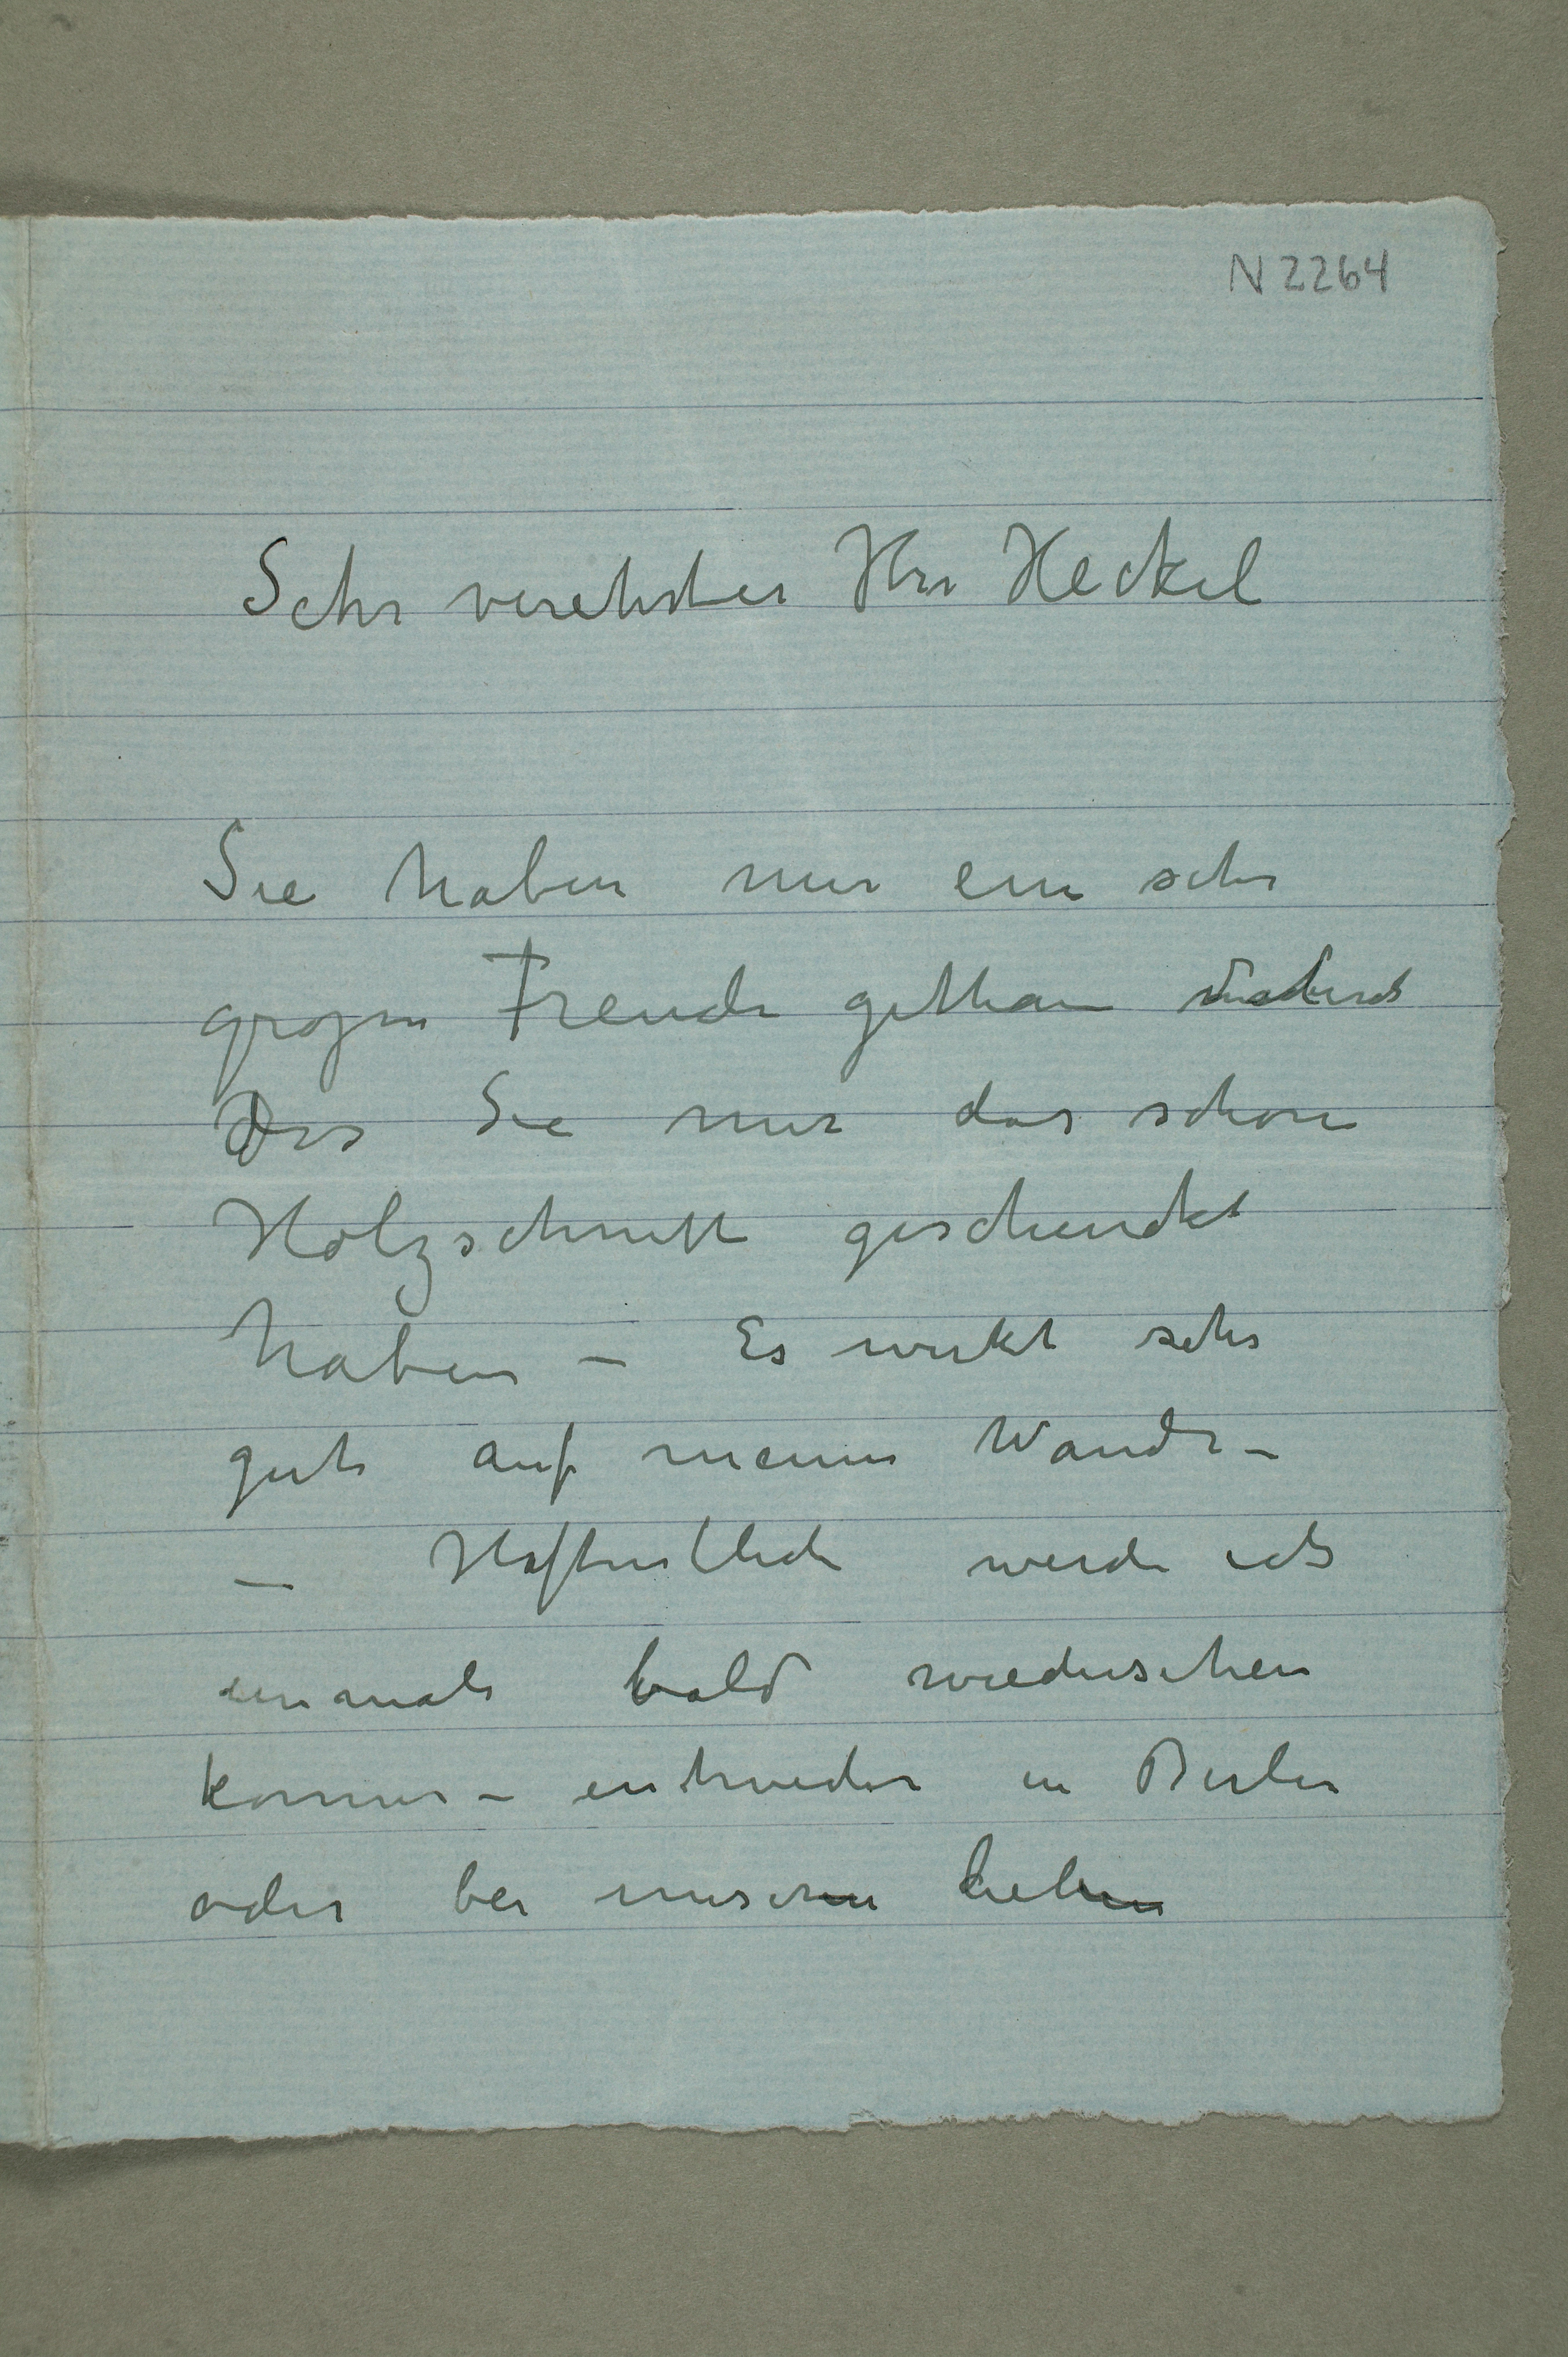 N 2264
Sehr verehrter Herr Heckel
Sie haben mir ein sehr
grosen Freude gethan
Das Sie mir das schöne
Holzschnitt geschenckt
haben – Es wirkt sehr
gut auf meine Wand –
– Hoffentlich werde ich
einmal bald wiedersehen
können – entweder in Berlin
oder bei unseren lieben